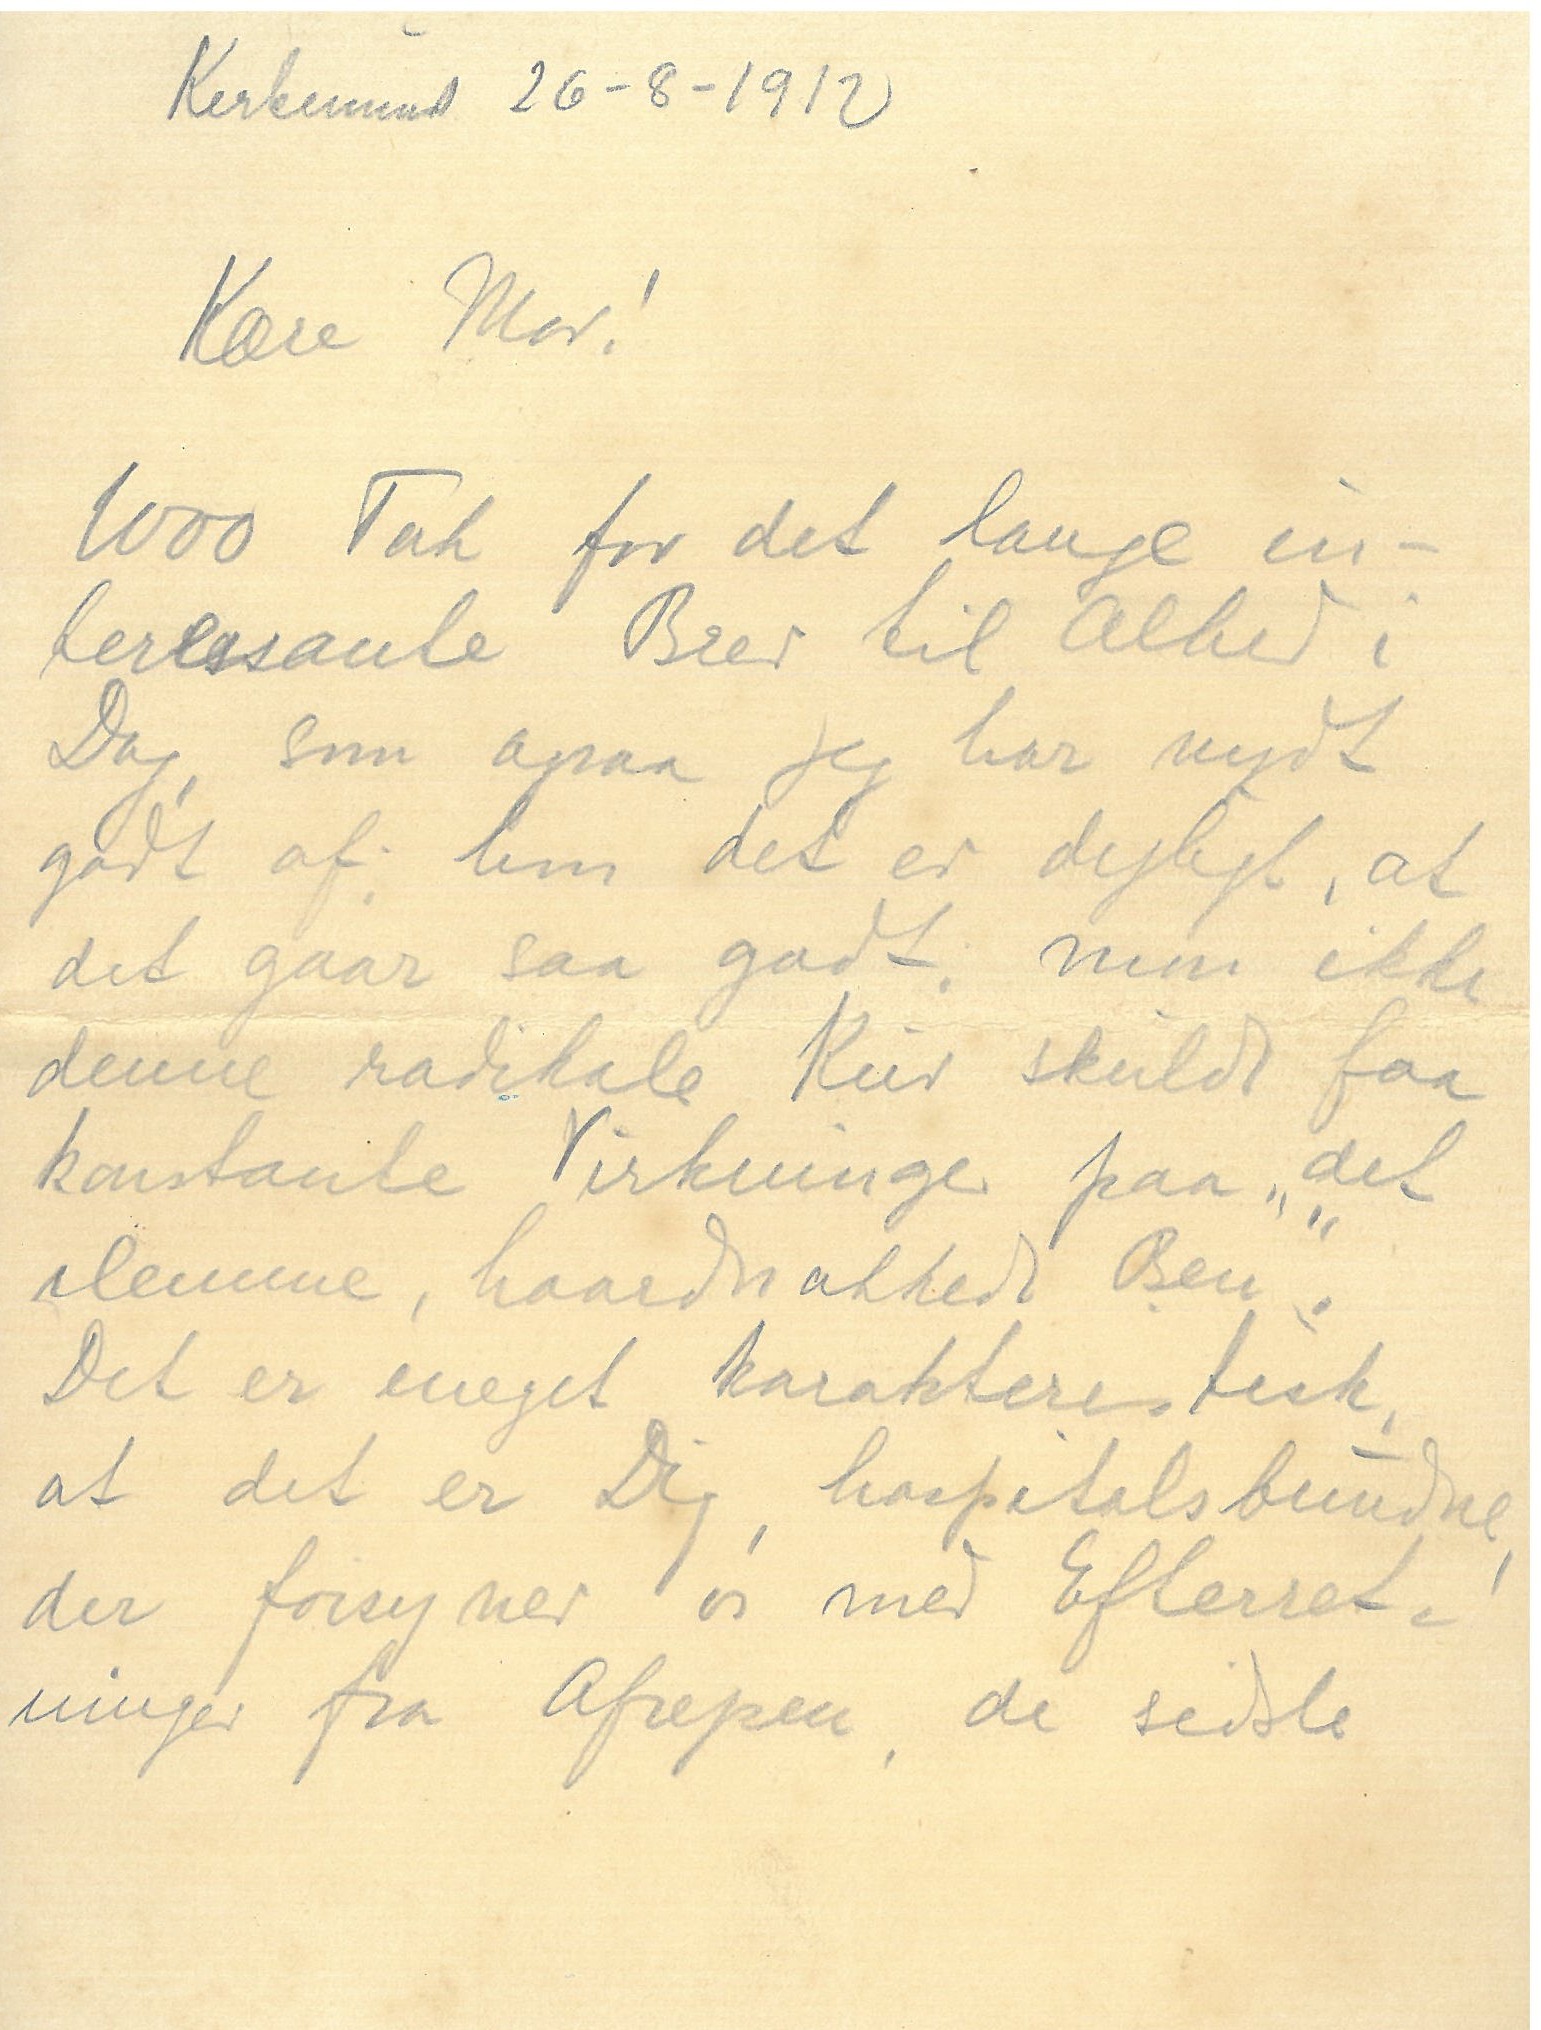 Kerteminde 26-8-1912
Kære Mor!
1000 Tak for det lange in-
teressante Brev til Alhed i
Dag, som ogsaa jeg har nydt
godt af; hvor det er dejligt, at
det gaar saa godt; mon ikke
denne radikale Kur skulde faa
konstante Virkninger paa „det
slemme, haardnakkede Ben“.
Det er meget karakteristisk,
at det er Dig, hospitalsbundne,
der forsyner os med Efterret-
ninger fra Afrejsen, de sidste